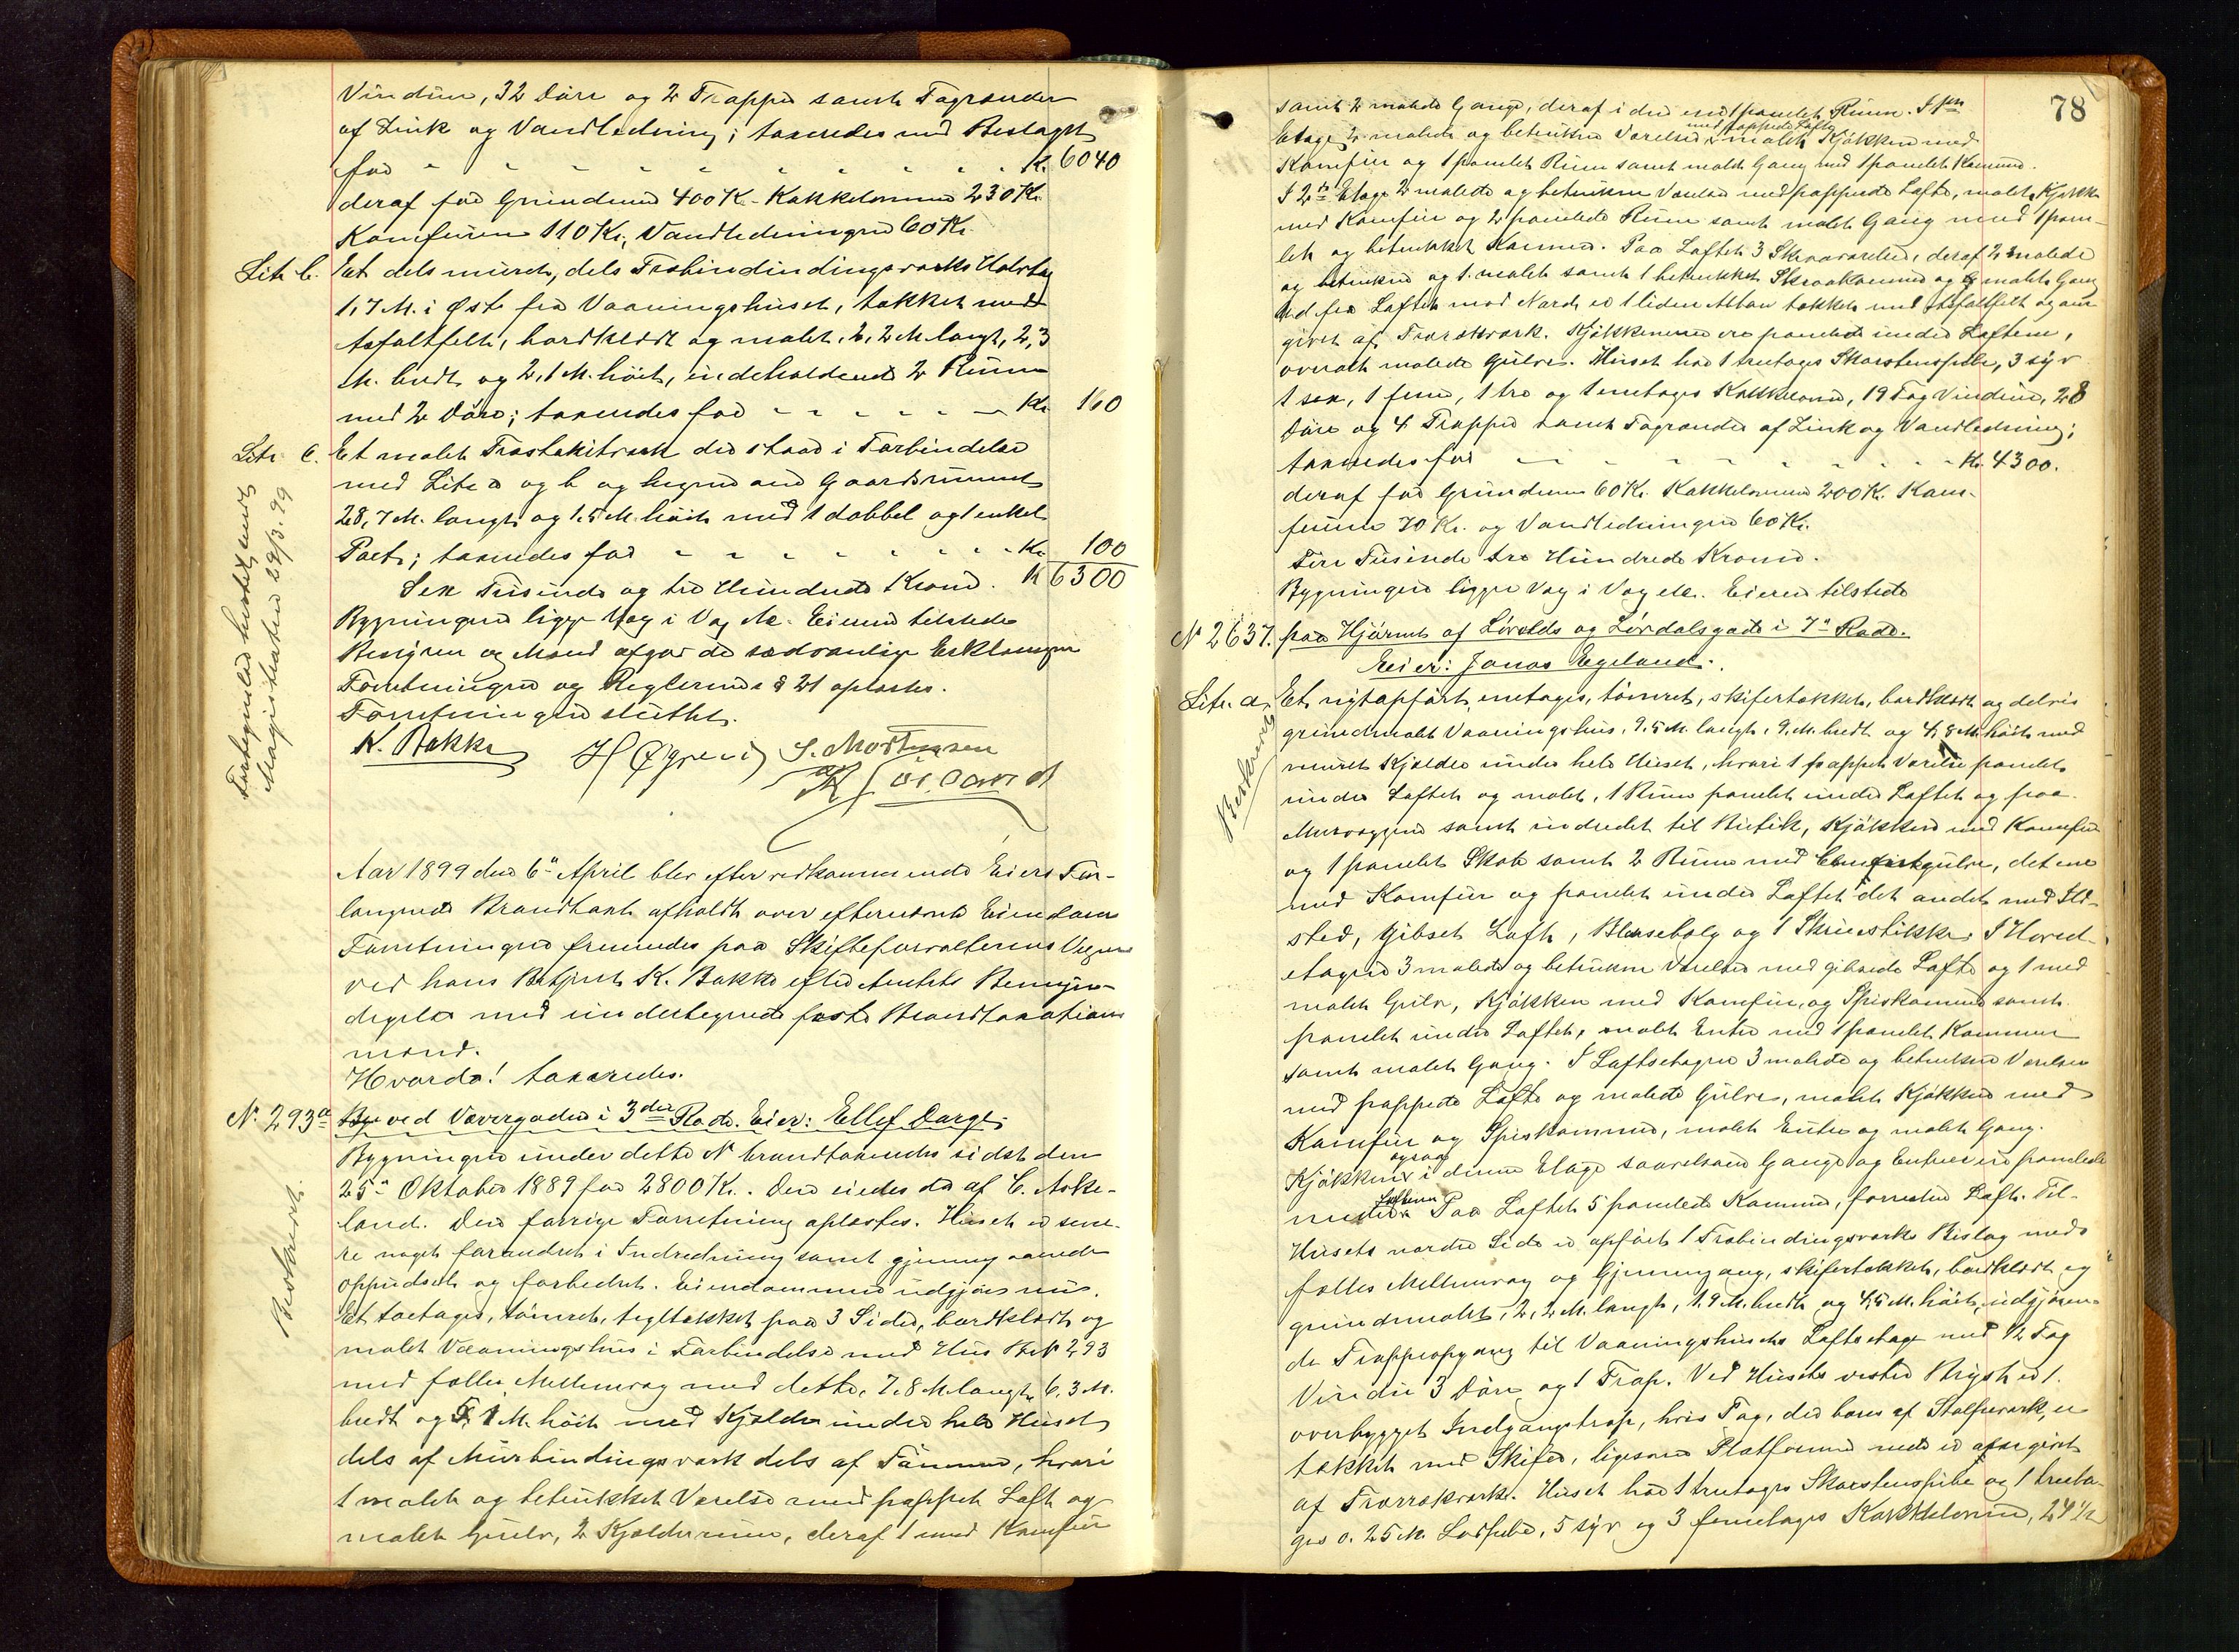 Vinduer, 32 Döre og 2 Trapper samt Tagrender
af Zink og Vandledning; taxeredes med Beslaget
for - - - - - - - - - - Kr. 6040
deraf for Grunden 400 Kr. Kakkelovnene 230 Kr.
Komfuren 110 Kr., Vandledningen 60 Kr.
Litr b. Et dels muret, dels Træbindingsverks Udhus
1,7 M. i Øst fra Vaaningshuset, tækket med
Asfaltfilt, bordklædt og malet, 2,2 M. langt, 2,3
M. bredt og 2,1 M. höit, indeholdende 2 Rum
med 2 Döre; taxeredes for - - - - - Kr. 160
Litr. c. Et malet Træstakitverk der staar i Forbindelse
med Litr a og b og hegner Gaardsrummet
28,7 M. langt og 1.5 M. höit med 1 dobbel og 1 enkel
Port; taxeredes for - - - - - - - - Kr. 100
Sex Tusinde og tre Hundrede Kroner. Kr 6300
Bygningerne ligger Væg i Væg &c. Eieren tilstede
Bestyrer og Mænd afgav de sædvanlige Erklæringer
Forretningen og Reglernes § 21 oplæstes.
Forretningen sluttet.
K. Bakke H Øgreid S. Mortensen
Forbegnelse bestyrende
Magistraten 29/3. 99
Aar 1899 den 6te April blev efter vedkommende Eiers For-
langende Brandtaxt afholdt over efternævnte Eiendom
Forretningen fremmedes paa Skifteforvalterens Vegne
ved hans Betjent K. Bakke efter Amtets Bemyn-
digelse med undertegnede faste Brandtaxations-
mænd.
Hvorda! taxeredes.
N. 293a ved Vævergaden i 3die Rode. Eier: Ellef Darge.
Bygningen under dette N brandtaxeredes sidst den
25de Oktober 1889 for 2800 Kr. Den eiedes da af C. Aske-
land. Den forrige Forretning oplæstes. Huset er sene-
re noget forandret i Indredning samt gjennemgaaende
oppudset og forbedret. Eiendommen udgjör nu.
Beskrevet.
Et toetages, tömret, tegltækket paa 3 Sider, bordklædt og
malet Vaaningshus i Forbindelse med Hus N 293
med fælles Mellemvæg med dette, 7,8 M. langt, 6,3 M.
bredt og 5,1 M. höit med Kjælder under hele Huset
dels af Murbindingsverk dels af Tömmer, hvori
1 malet og betrukket Værelse med pappet Loft og
malet Gulv, 2 Kjælderrum, deraf 1 med Komfur
78
samt 2 malede Gange, deraf i den ene 1 panelet Rum. I 1ste
Etage 2 malede og betrukne Værelser med pappede Lofte, malet Kjökken med
Komfur og 1 panelet Rum samt malet Gang med 1 panelet Kammer.
I 2den Etage 2 malede og betrukne Værelser med pappede Lofte, malet Kjökken
med Komfur og 2 panelede Rum samt malet Gang med 1 pane-
let og betrukket Kammer. Paa Loftet 3 Skraaværelser, deraf 2 malede
og betrukne og 1 malet samt 1 betrukket Skraakammer og malet Gang
Ud fra Loftet mod Nord er 1 liden Altan tækket med Asfaltfilt og om-
givet af Trærækverk. Kjökkenerne ere panelede under Loftene,
overalt malede Gulve. Huset har 1 treetages Skorstenspibe, 3 syv
1 sex, 1 fem, 1 tre og 1 eneetages Kakkelovne, 19 Fag Vinduer, 28
Döre og 4 Trapper samt Tagrender af Zink og Vandledning;
taxeredes for - - - - - - - - - Kr. 4300.
deraf for Grunden 60 Kr. Kakkelovnene 200 Kr. Kom-
furene 70 Kr. og Vandledningen 60 Kr.
Fire Tusinde tre Hundrede Kroner.
Bygningen ligger Væg i Væg &c. Eieren tilstede
N 2637. paa Hjörnet af Lövolds og Lövdalsgade i 7de Rode.
Eier: Jonas Egeland.
Beskrevet
Litr. a. Et nyt opfört, eneetages, tömret, skifertækket, bordklædt og delvis
grundmalet Vaaningshus, 9.5 M. langt, 9. M. bredt og 4,8 M. höit med
muret Kjælder under hele Huset, hvori 1 pappet Værelse panelet
under Loftet og malet, 1 Rum panelet under Loftet og paa
Murvæggene samt indredet til Butik, Kjökken med Komfur
og 1 panelet Skab samt 2 Rum med Cementgulve, det ene
med Komfur og panelet under Loftet det andet med Ild-
sted, gibset Loft, Blæsebælg og 1 Skruestikke. I Hoved-
etagen 3 malede og betrukne Værelser med gibsede Lofte og 1 med
malet Gulv, Kjökken med Komfur, og Spiskammer samt
panelet under Loftet, malet Entre med 1 panelet Kammer
samt malet Gang. I Loftsetagen 3 malede og betrukne Værelser
med pappede Lofte og malede Gulve, malet Kjökken med
Komfur og Spiskammer, malet Entre og malet Gang.
Kjökkener ogsaa i denne Etage saavelsom Gange og Entreer ere panelede
under Loftene Paa Loftet 5 panelede Kammer, forresten Loft. Til
Husets nordre Side er opfört 1 Træbindingsverks Bislag med
fælles Mellemvæg og Gjennemgang, skifertækket, bordklædt og
grundmalet, 2,2 M. langt, 1.9 M. bredt og 4,5 M. höit, udgjören-
de Trappeopgang til Vaaningshusets Loftsetage med 1/2 Fag
Vindue 3 Döre og 1 Trap. Ved Husets vestre Bryst er 1.
overbygget Indgangstrap, hvis Tag, der bæres af Stolpeverk, er
tækket med Skifer, ligesom Platformen med er omgivet
af Trærækverk. Huset har 1 treetages Skorstenspibe og 1 treeta-
ges 0.25 M. Lodpibe, 5 syv og 3 femetages Kakkelovne, 24 1/2